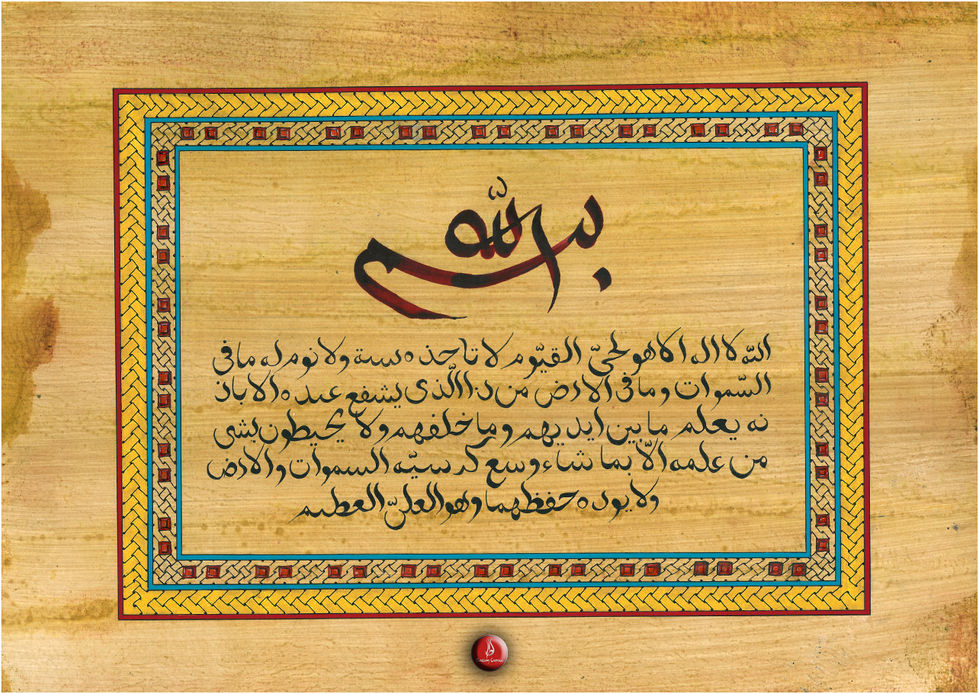 بسم الله
الله لا اله الا هو الحيّ القيّوم لا تاخذه سنة ولا نوم له ما في
السّموات وما في الارض من ذا الّذي يشفع عنده الا باذ
نه يعلم ما بين ايديهم وما خلفهم ولا يحيطون بشي
من علمه الّا بما شاء وسع كرسيّه السموات والارض
ولا يوده حفظهما وهو العليّ العظيم